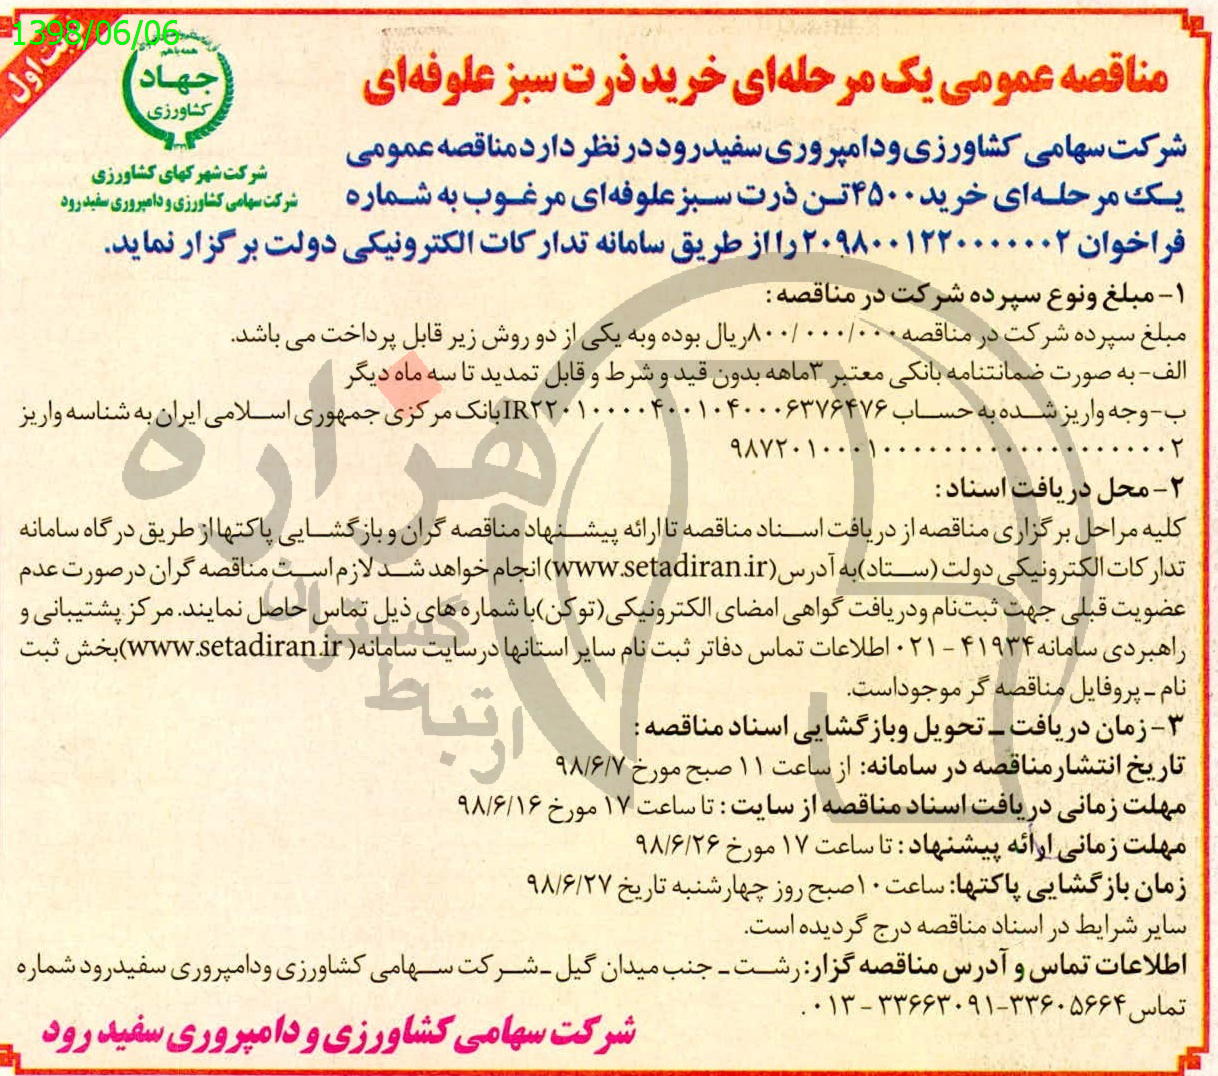 1398/06/06
نوبت اول
همه با هم
جهاد
کشاورزی
شرکت شهرکهای کشاورزی
شرکت سهامی کشاورزی و دامپروری سفیدرود
مناقصه عمومی یک مرحله‌ای خرید ذرت سبز علوفه‌ای
شرکت سهامی کشاورزی ودامپروری سفیدرود در نظر دارد مناقصه عمومی
یک مرحله‌ای خرید ۴۵۰۰ تن ذرت سبز علوفه‌ای مرغوب به شماره
فراخوان ۲۰۹۸۰۰۱۲۲۰۰۰۰۰۰۲ را از طریق سامانه تدارکات الکترونیکی دولت برگزار نماید.
۱- مبلغ ونوع سپرده شرکت در مناقصه :
مبلغ سپرده شرکت در مناقصه ۸۰۰/۰۰۰/۰۰۰ ریال بوده وبه یکی از دو روش زیر قابل پرداخت می باشد.
الف- به صورت ضمانتنامه بانکی معتبر ۳ماهه بدون قید و شرط و قابل تمدید تا سه ماه دیگر
ب-وجه واریز شده به حساب IR۲۲۰۱۰۰۰۰۴۰۰۱۰۴۰۰۰۶۳۷۶۴۷۶ بانک مرکزی جمهوری اسلامی ایران به شناسه واریز
۲- محل دریافت اسناد :
کلیه مراحل برگزاری مناقصه از دریافت اسناد مناقصه تا ارائه پیشنهاد مناقصه گران و بازگشایی پاکتها از طریق درگاه سامانه
تدارکات الکترونیکی دولت (ستاد)به آدرس(www.setadiran.ir) انجام خواهد شد لازم است مناقصه گران درصورت عدم
عضویت قبلی جهت ثبت‌نام ودریافت گواهی امضای الکترونیکی(توکن)با شماره های ذیل تماس حاصل نمایند. مرکز پشتیبانی و
راهبردی سامانه ۴۱۹۳۴ - ۰۲۱ اطلاعات تماس دفاتر ثبت نام سایر استانها درسایت سامانه( www.setadiran.ir)بخش ثبت
نام ـ پروفایل مناقصه گر موجوداست.
۳- زمان دریافت ـ تحویل وبازگشایی اسناد مناقصه :
تاریخ انتشار مناقصه در سامانه: از ساعت ۱۱ صبح مورخ ۹۸/۶/۷
مهلت زمانی دریافت اسناد مناقصه از سایت : تا ساعت ۱۷ مورخ ۹۸/۶/۱۶
مهلت زمانی ارائه پیشنهاد : تا ساعت ۱۷ مورخ ۹۸/۶/۲۶
زمان بازگشایی پاکتها: ساعت ۱۰صبح روز چهارشنبه تاریخ ۹۸/۶/۲۷
سایر شرایط در اسناد مناقصه درج گردیده است.
اطلاعات تماس و آدرس مناقصه گزار: رشت ـ جنب میدان گیل ـ شرکت سهامی کشاورزی ودامپروری سفیدرود شماره
تماس ۳۳۶۰۵۶۶۴-۳۳۶۶۳۰۹۱ - ۰۱۳ .
شرکت سهامی کشاورزی و دامپروری سفید رود
هزاره
ارتباط گستران